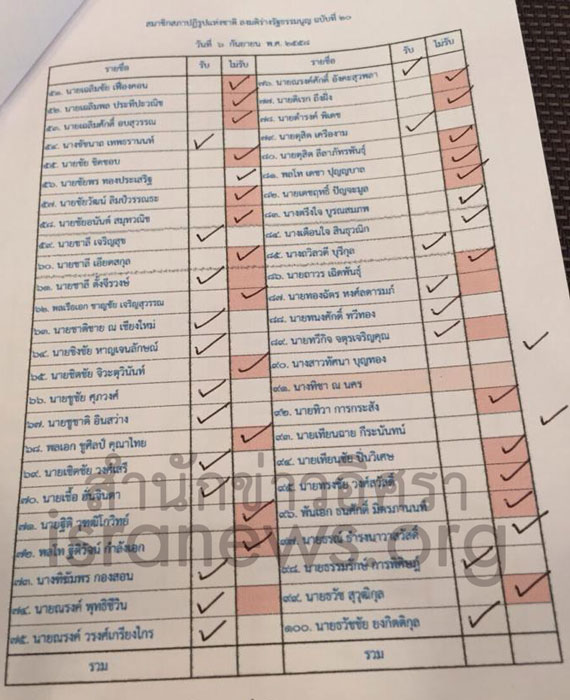 สมาชิกสภาปฏิรูปแห่งชาติ ลงมติร่างรัฐธรรมนูญ ฉบับที่ ๒๐
วันที่ ๖ กันยายน พ.ศ. ๒๕๕๘
รายชื่อ รับ ไม่รับ
๕๑. นายเฉลิมชัย เฟื่องคอน
๕๒. นายเฉลิมพล ประทีปะวณิช
๕๓. นายเฉลิมศักดิ์ อบสุวรรณ
๕๔. นางชัชนาถ เทพธรานนท์
๕๕. นายชัย ชิดชอบ
๕๖. นายชัยพร ทองประเสริฐ
๕๗. นายชัยวัฒน์ ลิมป์วรรณธะ
๕๘. นายชัยอนันต์ สมุทวณิช
๕๙. นายชาลี เจริญสุข
๖๐. นายชาลี เอียดสกุล
๖๑. นายชาลี ตั้งจีรวงษ์
๖๒. พลเรือเอก ชาญชัย เจริญสุวรรณ
๖๓. นายชาติชาย ณ เชียงใหม่
๖๔. นายชิงชัย หาญเจนลักษณ์
๖๕. นายชิตชัย จิวะตุวินันท์
๖๖. นายชูชัย ศุภวงศ์
๖๗. นายชูชาติ อินสว่าง
๖๘. พลเอก ชูศิลป์ คุณาไทย
๖๙. นายเชิดชัย วงศ์เสรี
๗๐. นายเชื้อ ฮั่นจินดา
๗๑. นายฐิติ วุฑฒิโกวิทย์
๗๒. พลโท ฐิติวัจน์ กำลังเอก
๗๓. นางฑิฆัมพร กองสอน
๗๔. นายณรงค์ พุทธิชีวิน
๗๕. นายณรงค์ วรงค์เกรียงไกร
รวม
รายชื่อ รับ ไม่รับ
๗๖. นายณรงค์ศักดิ์ อังคะสุวพลา
๗๗. นายดิเรก ถึงฝั่ง
๗๘. นายดำรงค์ พิเดช
๗๙. นายดุสิต เครืองาม
๘๐. นายดุสิต ลีลาภัทรพันธุ์
๘๑. พลโท เดชา ปุญญบาล
๘๒. นายเดชฤทธิ์ ปัญจะมูล
๘๓. นางตรึงใจ บูรณสมภพ
๘๔. นางเตือนใจ สินธุวณิก
๘๕. นางถวิลวดี บุรีกุล
๘๖. นายถาวร เฉิดพันธุ์
๘๗. นายทองฉัตร หงศ์ลดารมภ์
๘๘. นายทนงศักดิ์ ทวีทอง
๘๙. นายทวีกิจ จตุรเจริญคุณ
๙๐. นางสาวทัศนา บุญทอง
๙๑. นางทิชา ณ นคร
๙๒. นายทิวา การกระสัง
๙๓. นายเทียนฉาย กีระนันทน์
๙๔. นายเทียนชัย ปิ่นวิเศษ
๙๕. นายทรงชัย วงศ์สวัสดิ์
๙๖. พันเอก ธนศักดิ์ มิตรภานนท์
๙๗. นายธรณ์ ธำรงนาวาสวัสดิ์
๙๘. นายธรรมรักษ์ การพิศิษฎ์
๙๙. นายธวัช สุวุฒิกุล
๑๐๐. นายธวัชชัย ยงกิตติกุล
รวม
สำนักข่าวอิศรา
isranews.org